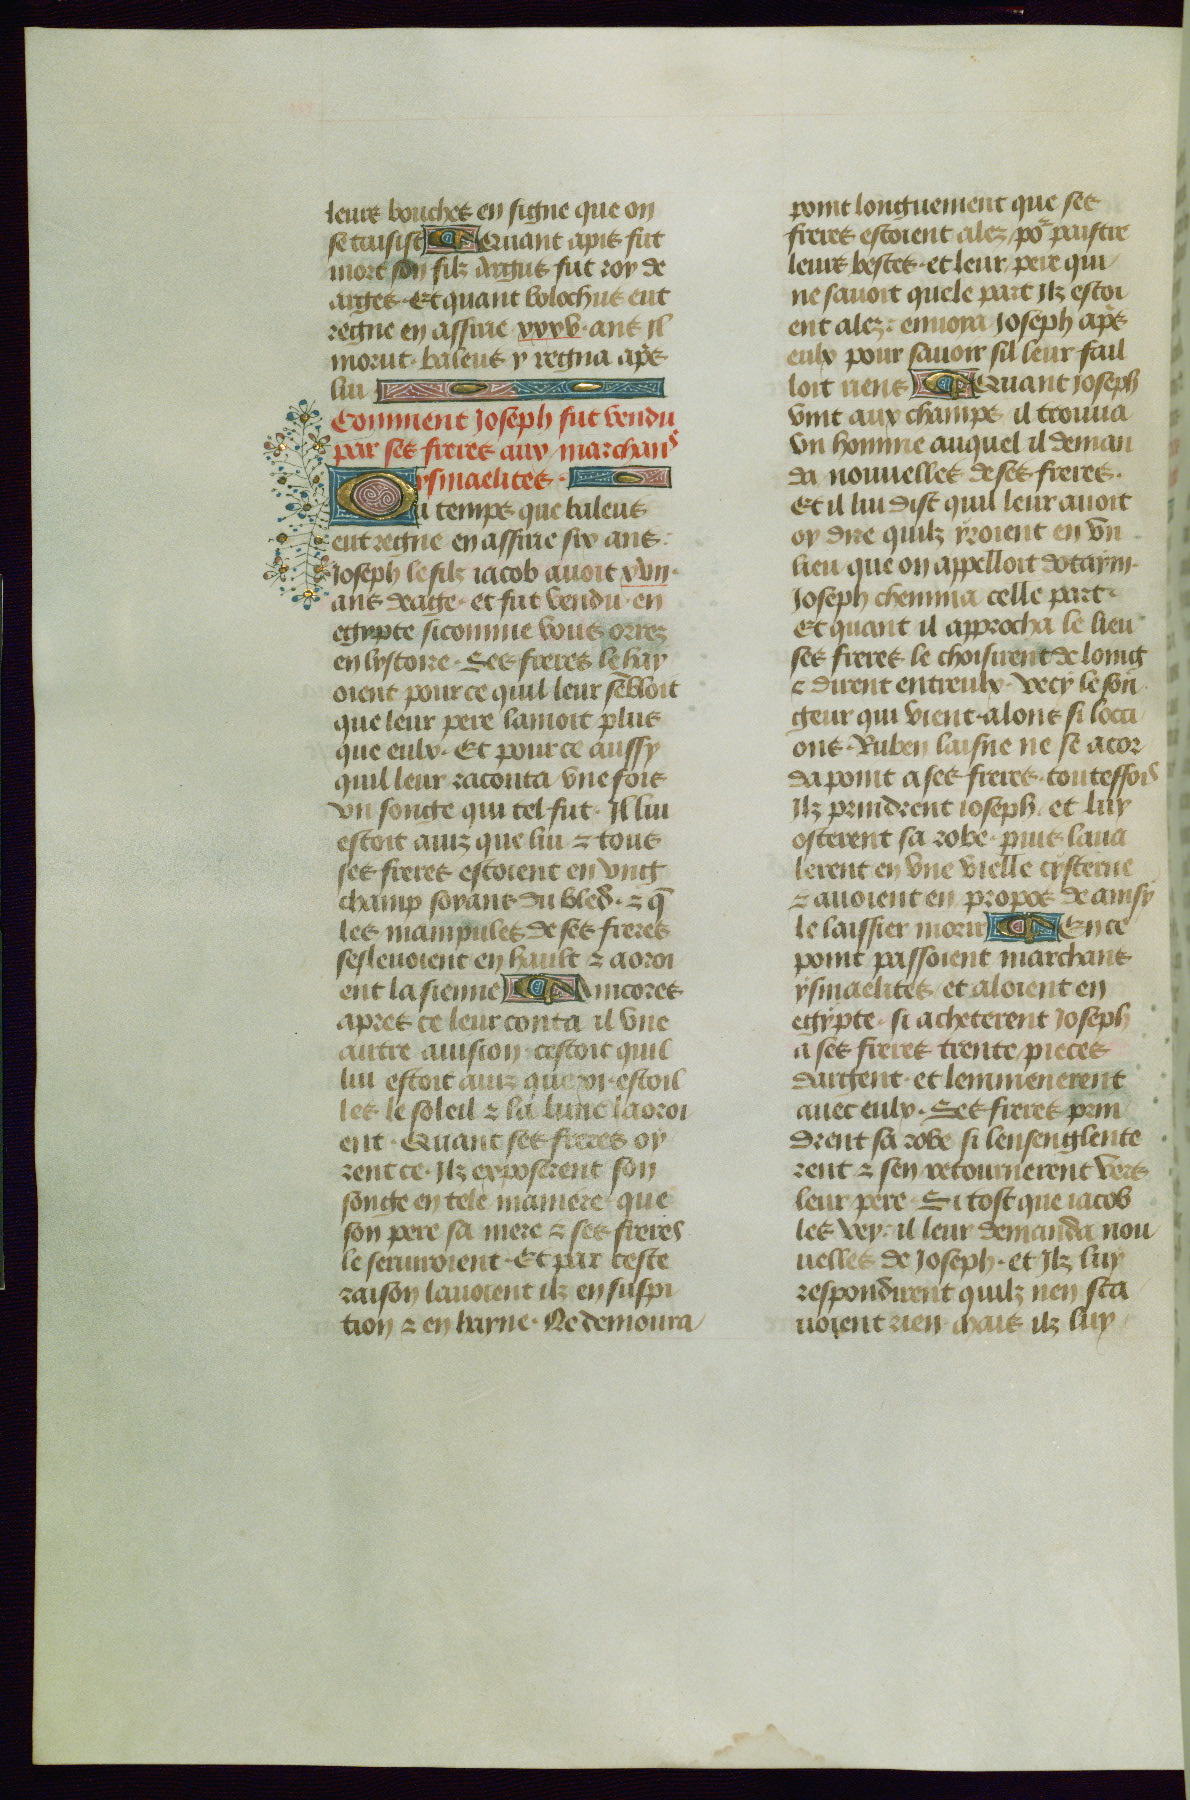 leurs bouches en signe que on
se teusist Quant apis fut
mort son filz Argus fut roy de
arges. Et quant bolochus eut
regne en assirie xxxv. ans Il
morut. baleus y regna aprs
lui
Comment Joseph fut vendu
par ses freres aux marchans
ysmaelites.
Du temps que baleus
eut regne en assirie six ans.
Joseph le filz iacob auoit xvii.
ans deage. et fut vendu en
egypte sicomme vous orrez
en lystoire. Ses freres le hay
oient pour ce quil leur sēbloit
que leur pere lamoit plus
que eulx. Et pour ce aussy
quil leur raconta vne fois
vn songe qui tel fut. Il lui
estoit auiz que lui ⁊ tous
ses freres estoient en vng
champ soyans du bled. ⁊ q̄
les manipules de ses freres
seslevoient en hault ⁊ aoroi
ent la sienne Aincores
apres ce leur conta il vne
autre auision cestoit quil
lui estoit auiz que xi. estoil
les le soleil ⁊ la lune laoroi
ent. Quant ses freres oy
rent ce. Ilz exposerent son
songe en tele maniere que
son pere sa mere ⁊ ses freres
le seruiroient. Et par ceste
raison lauoient ilz en suspi
tion ⁊ en hayne. Ne demoura
point longuement que ses
freres estoient alez por paistre
leurs bestes. et leur pere qui
ne sauoit quele part Ilz estoi
ent alez: enuoya Joseph aprs
eulx pour sauoir sil leur fail
loit riens Quant Joseph
vint aux champs il trouua
vn homme auquel il deman
da nouuelles de ses freres.
Et il lui dist quil leur auoit
oy dire quilz yroient en vn̄
lieu que on appelloit dotaym.
Joseph chemina celle part.
Et quant il approcha le lieu
ses freres le choisirent de loing
⁊ dirent entreulx. Vecy le son
geur qui vient. alons si locci
ons. Ruben laisne ne se acor
da point a ses freres. toutesfois
Ilz prindrent ioseph. et luy
osterent sa robe. puis laua
lerent en vne vielle cysterne
⁊ auoient en propos de ainsy
le laissier morir En ce
point passoient marchans
ysmaelites et aloient en
egypte. si acheterent Joseph
a ses freres trente pieces
dargent. et lemmenerent
auec eulx. Ses freres prin
drent sa robe si lensenglente
rent ⁊ sen retournerent vers
leur pere. Si tost que iacob
les vey. il leur demanda nou
uelles de Joseph. et Ilz luy
respondirent quilz nen sca
uoient rien. mais ilz luy